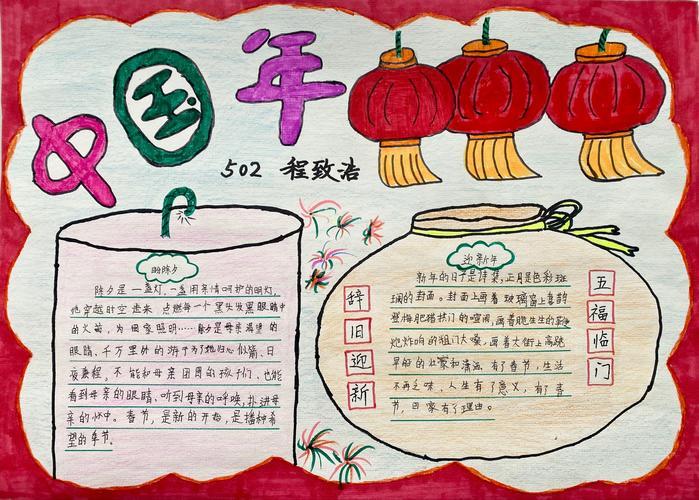 中国年
502 程致浩
盼除夕
除夕是一盏灯,一盏用亲情呵护的明灯,
他穿越时空走来,点燃每一个黑头发黑眼睛中
的火苗,为回家照明……除夕是母亲渴望的
眼睛,千万里外的游子为了她归心似箭,日
夜兼程,不能和母亲团圆的孩子们,也能
看到母亲的眼睛、听到母亲的呼唤,扑进母
亲的怀中。春节,是新的开始,是播种希
望的季节。
迎新年
新年的日子是诗集,正月是色彩斑
斓的封面。封面上画着玻璃窗上喜鹊
登梅肥猪拱门的喧闹,画着脆生生的
炮炸响的祖门大嗓,画着大街上高跷
旱船的壮家和潇洒,有了春节,生活
不再乏味,人生有了意义,有了春
节,回家有了理由。
辞旧迎新
五福临门